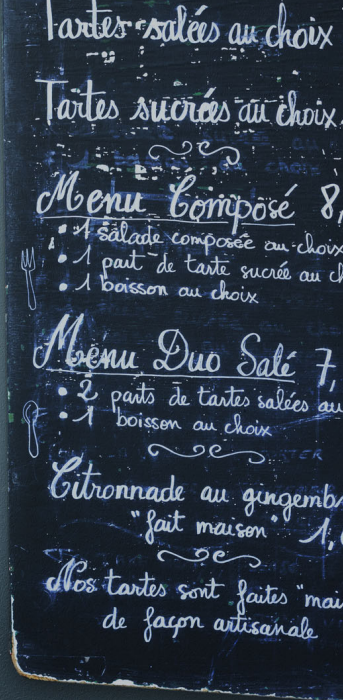 Tartes salées au choix
Tartes sucrées au choix
Menu Composé 8,
• 1 salade composée au choix
• 1 part de tarte sucrée au ch
• 1 boisson au choix
Menu Duo Salé 7,
• 2 parts de tartes salées au
• 1 boisson au choix
Citronnade au gingemb
"fait maison" 1,
Nos tartes sont faites "mai
de façon artisanale